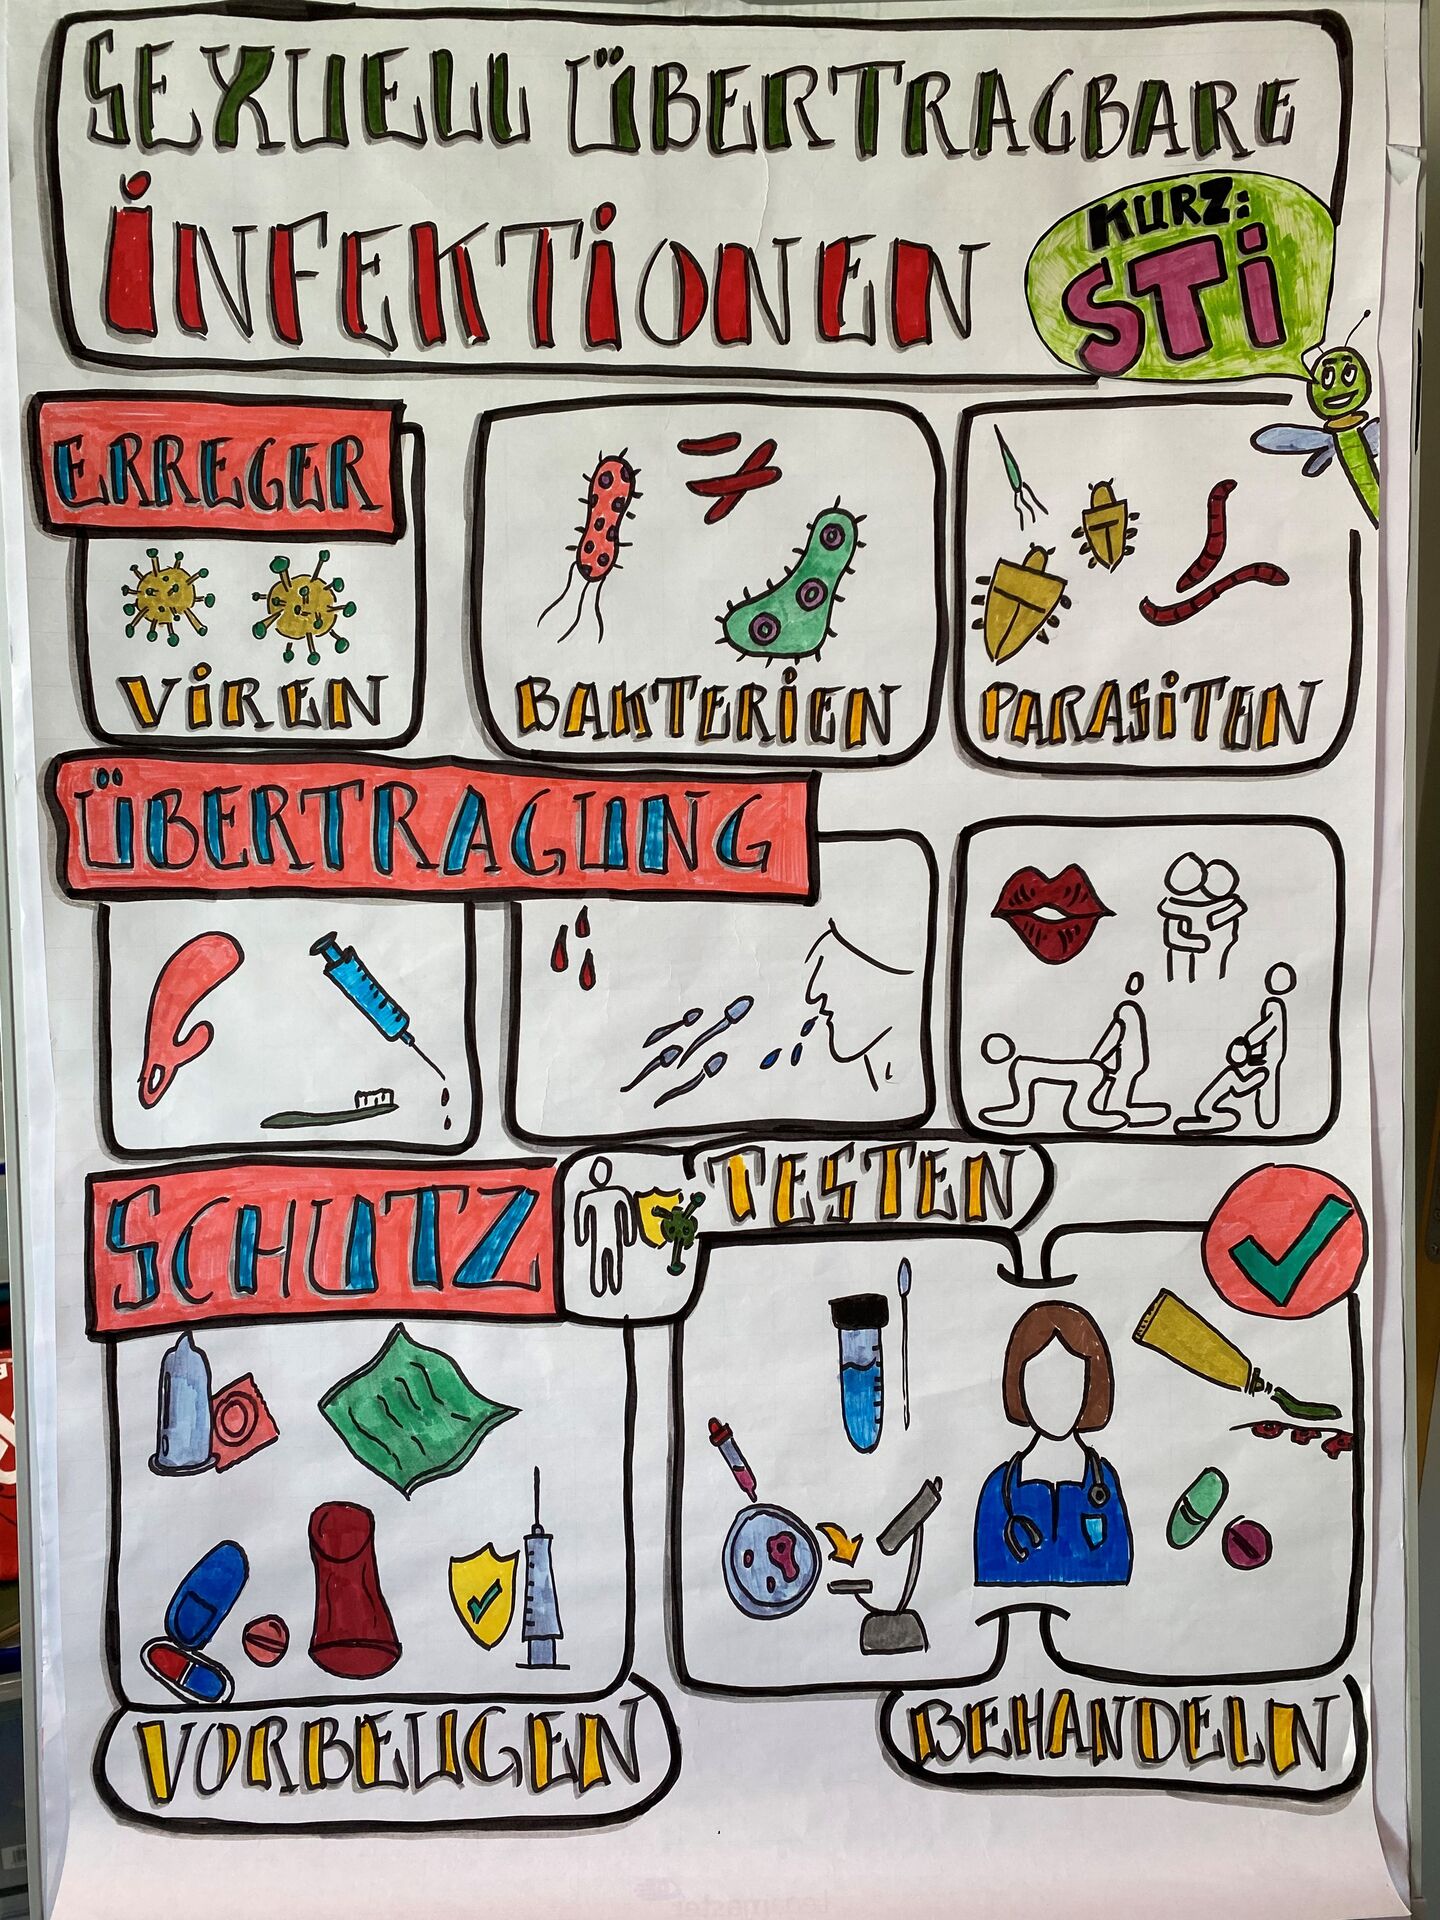 SEXUELL ÜBERTRAGBARE
INFEKTIONEN
KURZ:
STI
ERREGER
VIREN
BAKTERIEN
PARASITEN
ÜBERTRAGUNG
SCHUTZ
TESTEN
VORBEUGEN
BEHANDELN